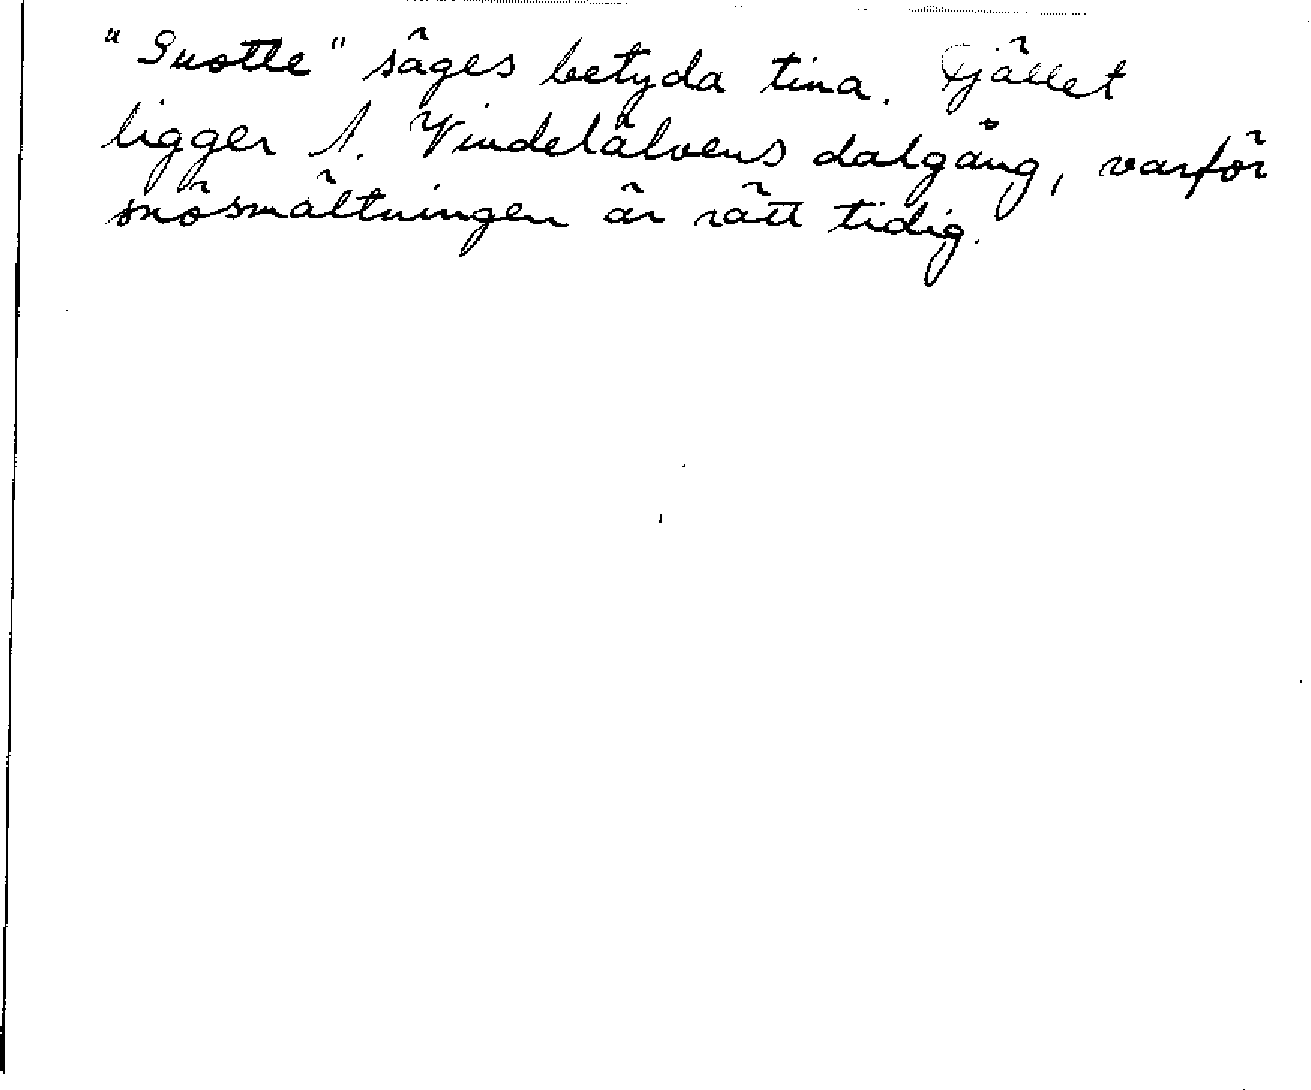 "Suotte" säges betyda tina. Fjället
ligger i. Vindelälvens dalgång, varför
snösmältningen är rätt tidig.